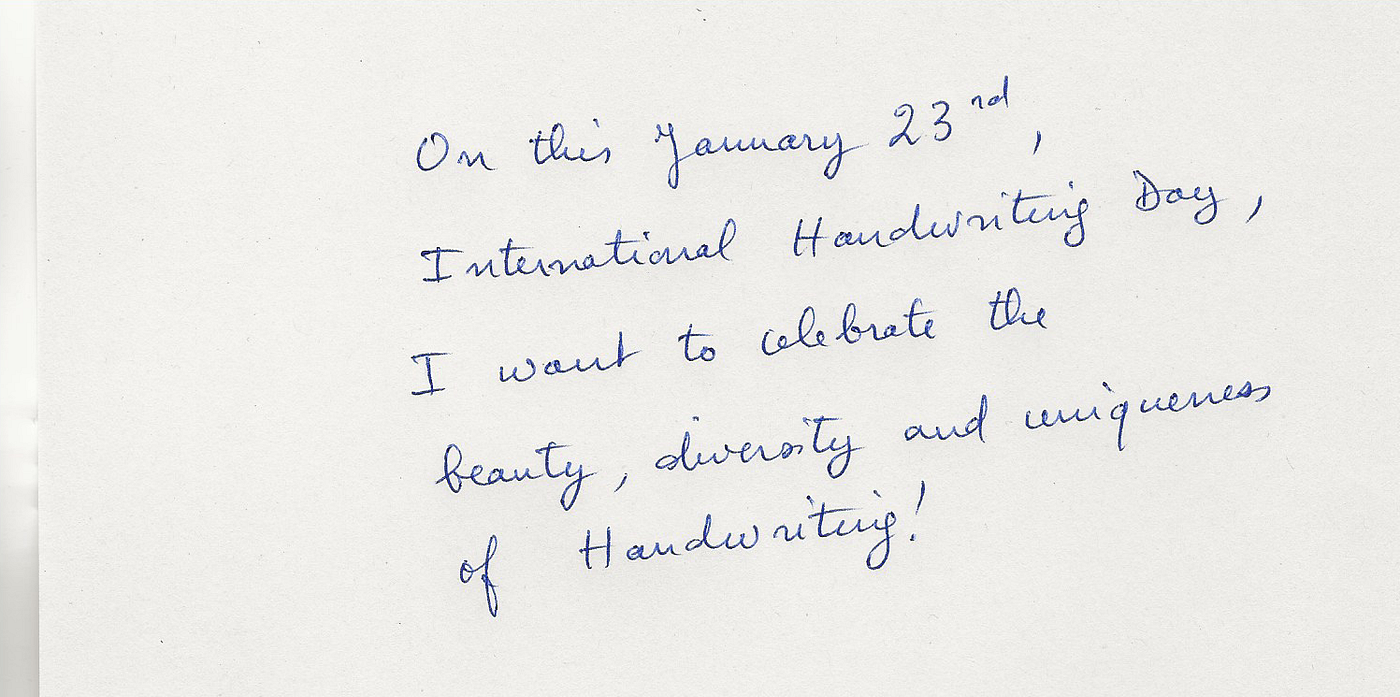 On this January 23rd,
International Handwriting Day,
I want to celebrate the
beauty, diversity and uniqueness
of Handwriting!